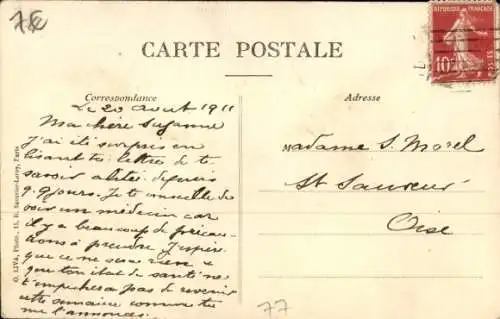 7€
CARTE POSTALE
RÉPUBLIQUE FRANÇAISE
10c
POSTES
Correspondance
Adresse
Le 20 aout 1911
Ma chère Suzanne
j'ai été surpris en
lisant ta lettre de te
savoir alitée depuis
q.q jours. Je te conseille de
voir un médecin car
il y a beaucoup de précau-
tions à prendre j'espère
que ce ne sera rien et
que ton état de santé ne
t'empêchera pas de revenir
cette semaine comme tu
me l'annonces.
Madame S. Morel
St Sauveur
Oise
O. LIVA, Photo., 11, R. Saunier-Leroy, Paris
77